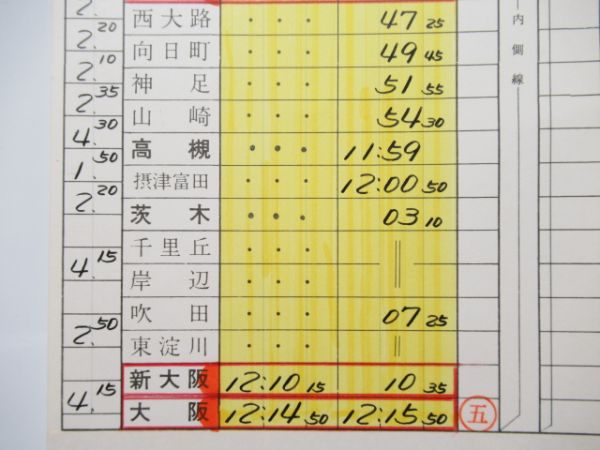 2.
西大路 ・・・ 47 25
2. 20
向日町 ・・・ 49 45
2. 10
神足 ・・・ 51 55
2. 35
山崎 ・・・ 54 30
4. 30
高槻 ・・・ 11:59
1. 50
摂津富田 ・・・ 12:00 50
2. 20
茨木 ・・・ 03 10
千里丘 ・・・ ||
4. 15
岸辺 ・・・
吹田 ・・・ 07 25
2. 50
東淀川 ・・・ ||
新大阪 12:10 15 10 35
4. 15
大阪 12:14 50 12:15 50 五
内側線